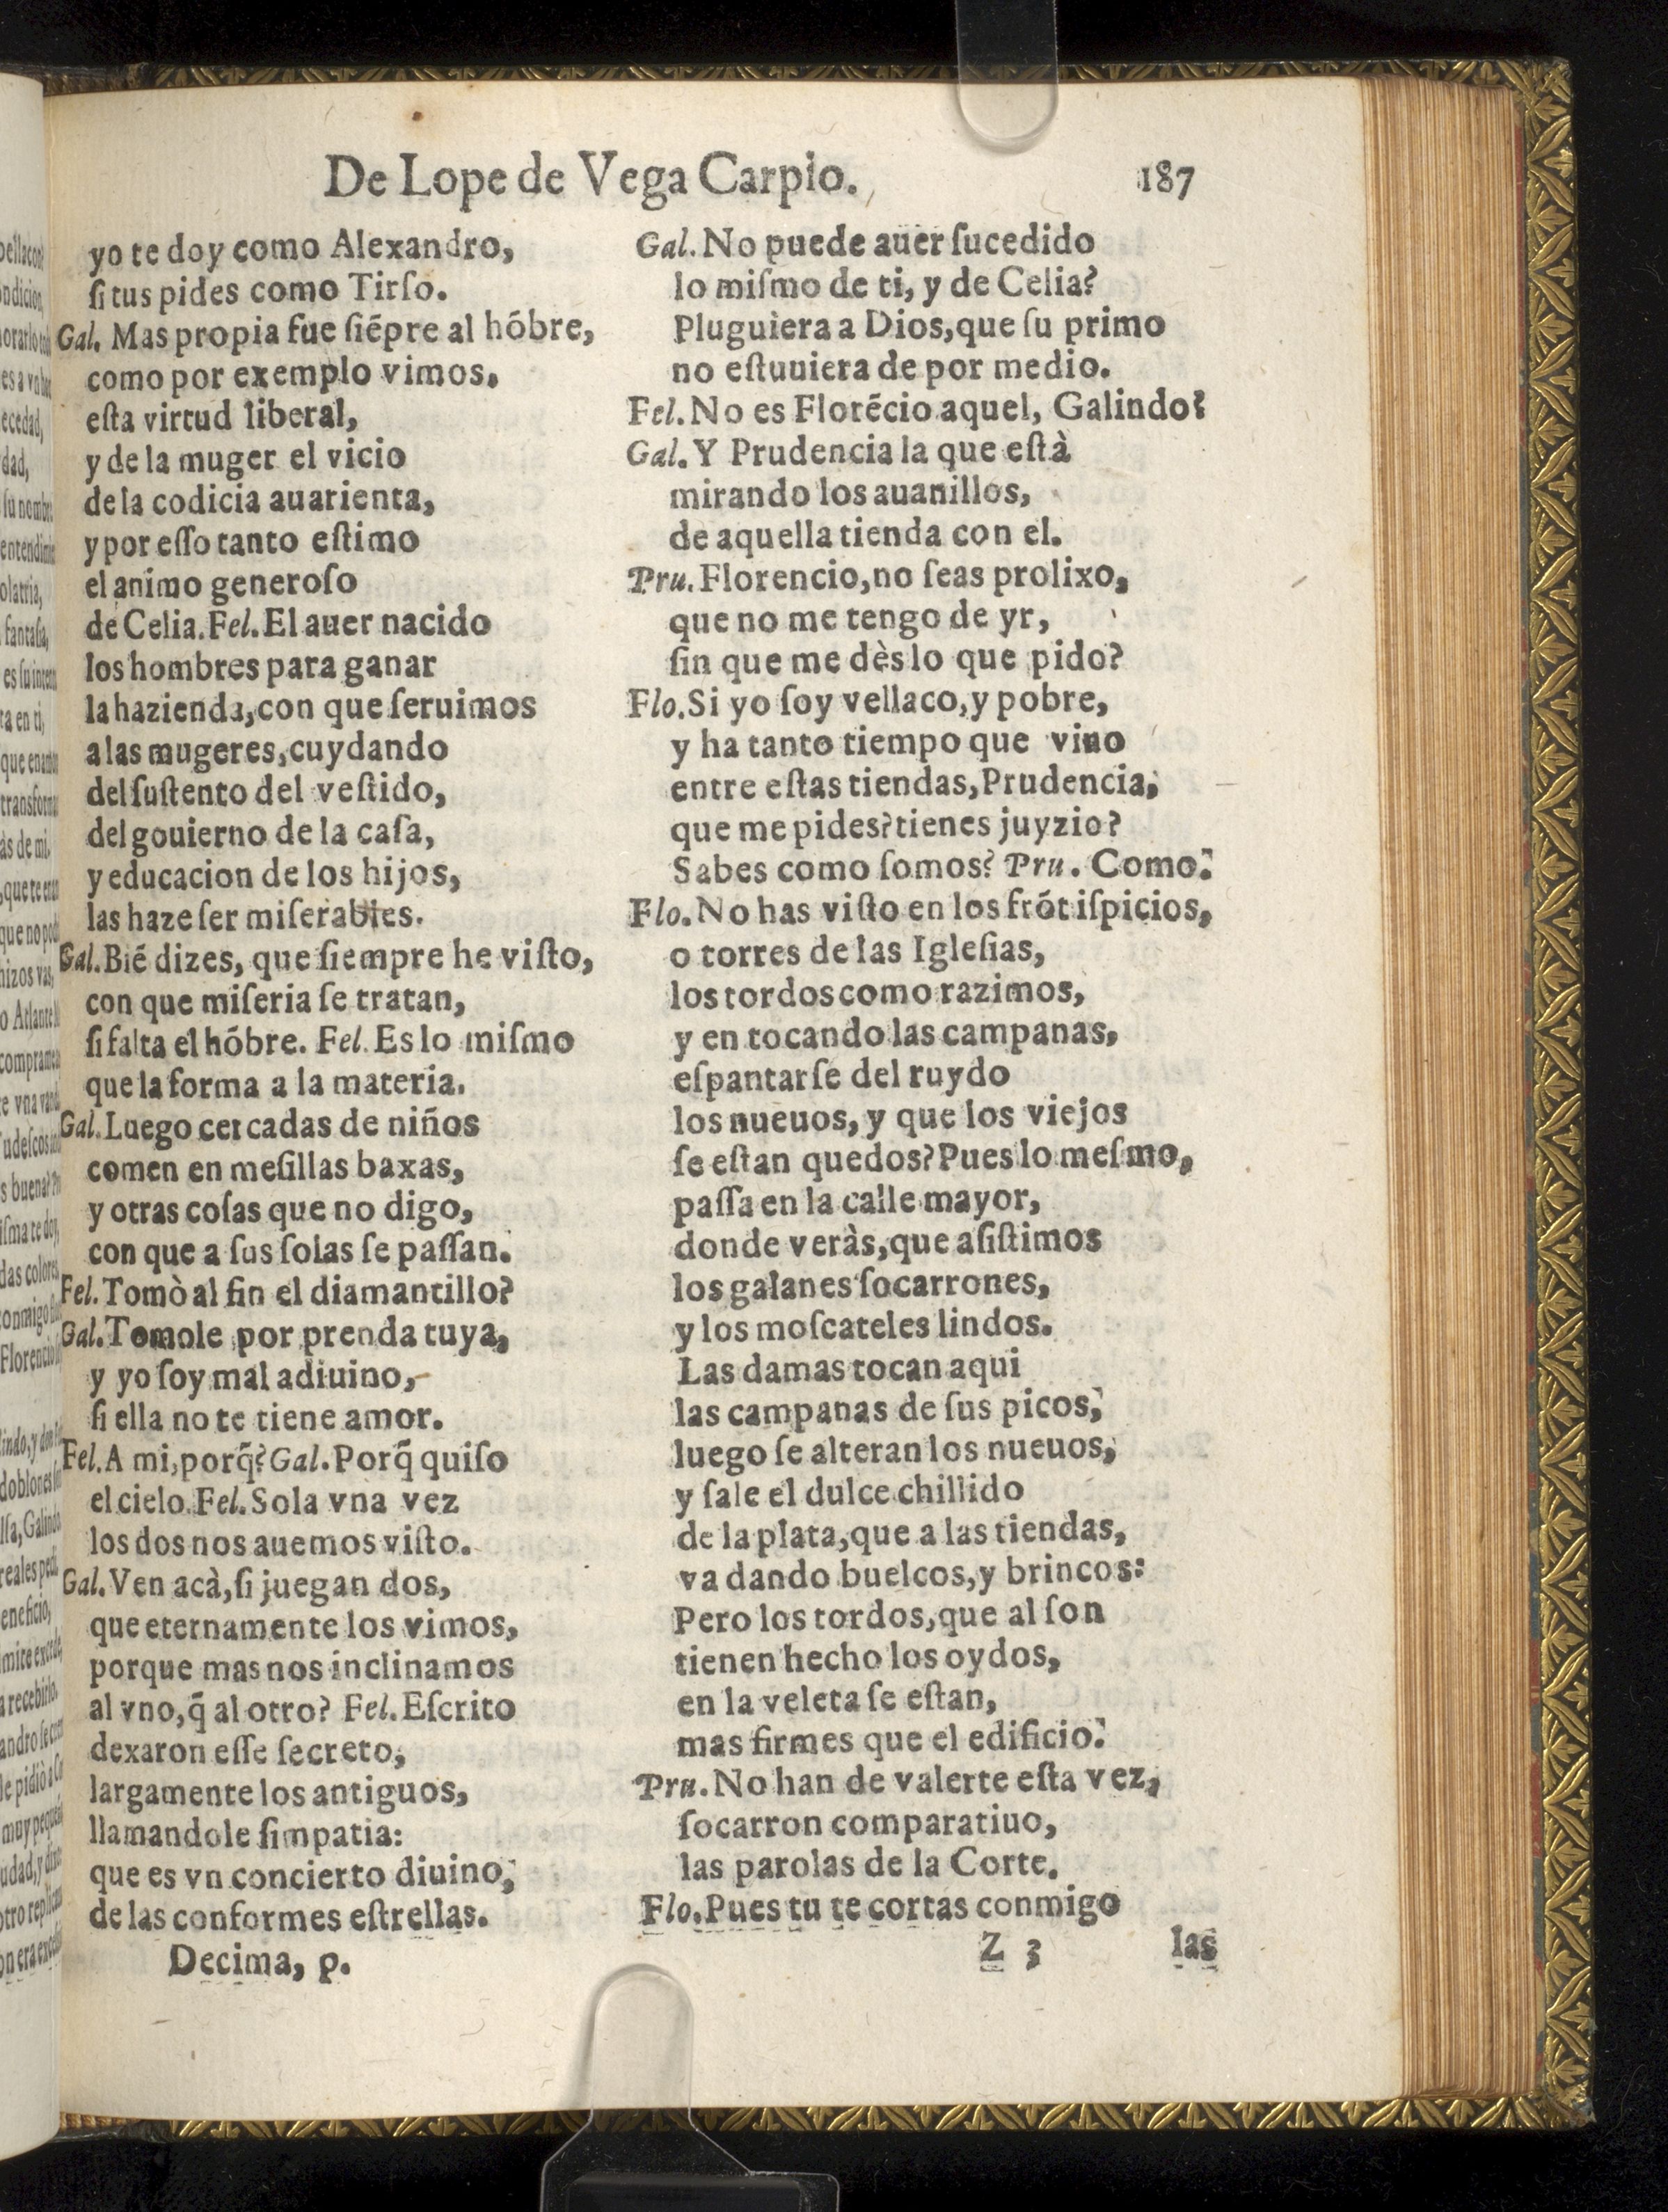 De Lope de Vega Carpio. 187
yo te doy como Alexandro,
ſi tus pides como Tirſo.
Gal. Mas propia fue ſiẽpre al hõbre,
como por exemplo vimos,
eſta virtud liberal,
y de la muger el vicio
de la codicia auarienta,
y por eſſo tanto eſtimo
el animo generoſo
de Celia. Fel. El auer nacido
los hombres para ganar
la hazienda, con que ſeruimos
a las mugeres, cuydando
del ſuſtento del veſtido,
del gouierno de la caſa,
y educacion de los hijos,
las haze ſer miſerables.
Gal. Biẽ dizes, que ſiempre he viſto,
con que miſeria ſe tratan,
ſi falta el hõbre. Fel. Es lo miſmo
que la forma a la materia.
Gal. Luego cercadas de niños
comen en meſillas baxas,
y otras coſas que no digo,
con que a ſus ſolas ſe paſſan.
Fel. Tomò al fin el diamantillo?
Gal. Tomole por prenda tuya,
y yo ſoy mal adiuino,
ſi ella no te tiene amor.
Fel. A mi, porq̃? Gal. Porq̃ quiſo
el cielo. Fel. Sola vna vez
los dos nos auemos viſto.
Gal. Ven acà, ſi juegan dos,
que eternamente los vimos,
porque mas nos inclinamos
al vno, q̃ al otro? Fel. Eſcrito
dexaron eſſe ſecreto,
largamente los antiguos,
llamandole ſimpatia:
que es vn concierto diuino,
de las conformes eſtrellas.
Decima, p.
Gal. No puede auer ſucedido
lo miſmo de ti, y de Celia?
Pluguiera a Dios, que ſu primo
no eſtuuiera de por medio.
Fel. No es Florẽcio aquel, Galindo?
Gal. Y Prudencia la que eſtà
mirando los auanillos,
de aquella tienda con el.
Pru. Florencio, no ſeas prolixo,
que no me tengo de yr,
ſin que me dès lo que pido?
Flo. Si yo ſoy vellaco, y pobre,
y ha tanto tiempo que viuo
entre eſtas tiendas, Prudencia,
que me pides? tienes juyzio?
Sabes como ſomos? Pru. Como?
Flo. No has viſto en los frõtiſpicios,
o torres de las Igleſias,
los tordos como razimos,
y en tocando las campanas,
eſpantarſe del ruydo
los nueuos, y que los viejos
ſe eſtan quedos? Pues lo meſmo,
paſſa en la calle mayor,
donde veràs, que aſiſtimos
los galanes ſocarrones,
y los moſcateles lindos.
Las damas tocan aqui
las campanas de ſus picos,
luego ſe alteran los nueuos,
y ſale el dulce chillido
de la plata, que a las tiendas,
va dando buelcos, y brincos:
Pero los tordos, que al ſon
tienen hecho los oydos,
en la veleta ſe eſtan,
mas firmes que el edificio.
Pru. No han de valerte eſta vez,
ſocarron comparatiuo,
las parolas de la Corte.
Flo. Pues tu te cortas conmigo
Z 3 las